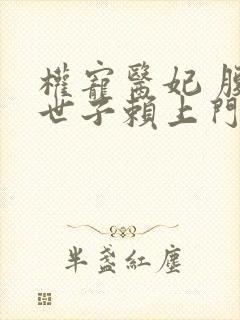 權寵醫妃
世子賴上門
半盞紅塵